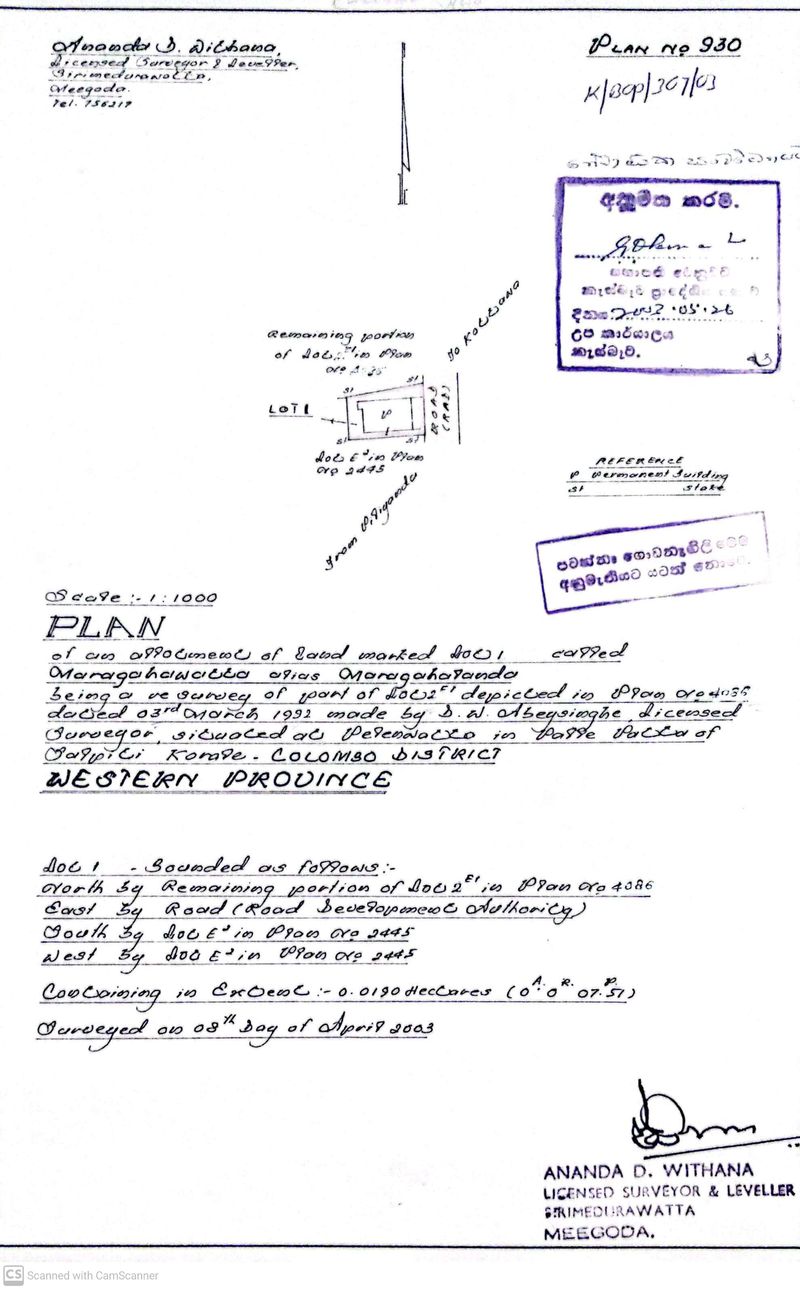 Ananda D. Withana,
Licensed Surveyor & Leveller,
Sirimedurawatta,
Meegoda.
Tel. 756219
PLAN No 930
K/BOP/307/03
අනුමත කරමි.
සභාපති
කැස්බෑව ප්‍රාදේශීය
දිනය 2003.05.26
උප කාර්යාලය
කැස්බෑව.
To Kottawa
Remaining portion
of Lot 2E1 in Plan
No
St St
LOT 1
P
ROAD
(RDA)
St St
Lot E2 in Plan
No 2445
From Piliyandala
REFERENCE
P Permanent Building
St Stake
පවත්නා ගොඩනැගිලි මෙම
අනුමැතියට යටත් නොවේ.
Scale :- 1:1000
PLAN
of an allotment of Land marked Lot 1 called
Maragahawatta alias Maragahalanda
being a re survey of part of Lot 2E1 depicted in Plan No 4086
dated 03rd March 1992 made by D. W. Abeysinghe, Licensed
Surveyor, situated at Pelenwatta in Palle Pattu of
Salpiti Korale - COLOMBO DISTRICT
WESTERN PROVINCE
Lot 1 - Bounded as follows:-
North by Remaining portion of Lot 2E1 in Plan No 4086
East by Road (Road Development Authority)
South by Lot E2 in Plan No 2445
West by Lot E2 in Plan No 2445
Containing in Extent :- 0.0190 Hectares (0A. 0R. 07.51P)
Surveyed on 08th Day of April 2003
ANANDA D. WITHANA
LICENSED SURVEYOR & LEVELLER
SIRIMEDURAWATTA
MEEGODA.
CS Scanned with CamScanner